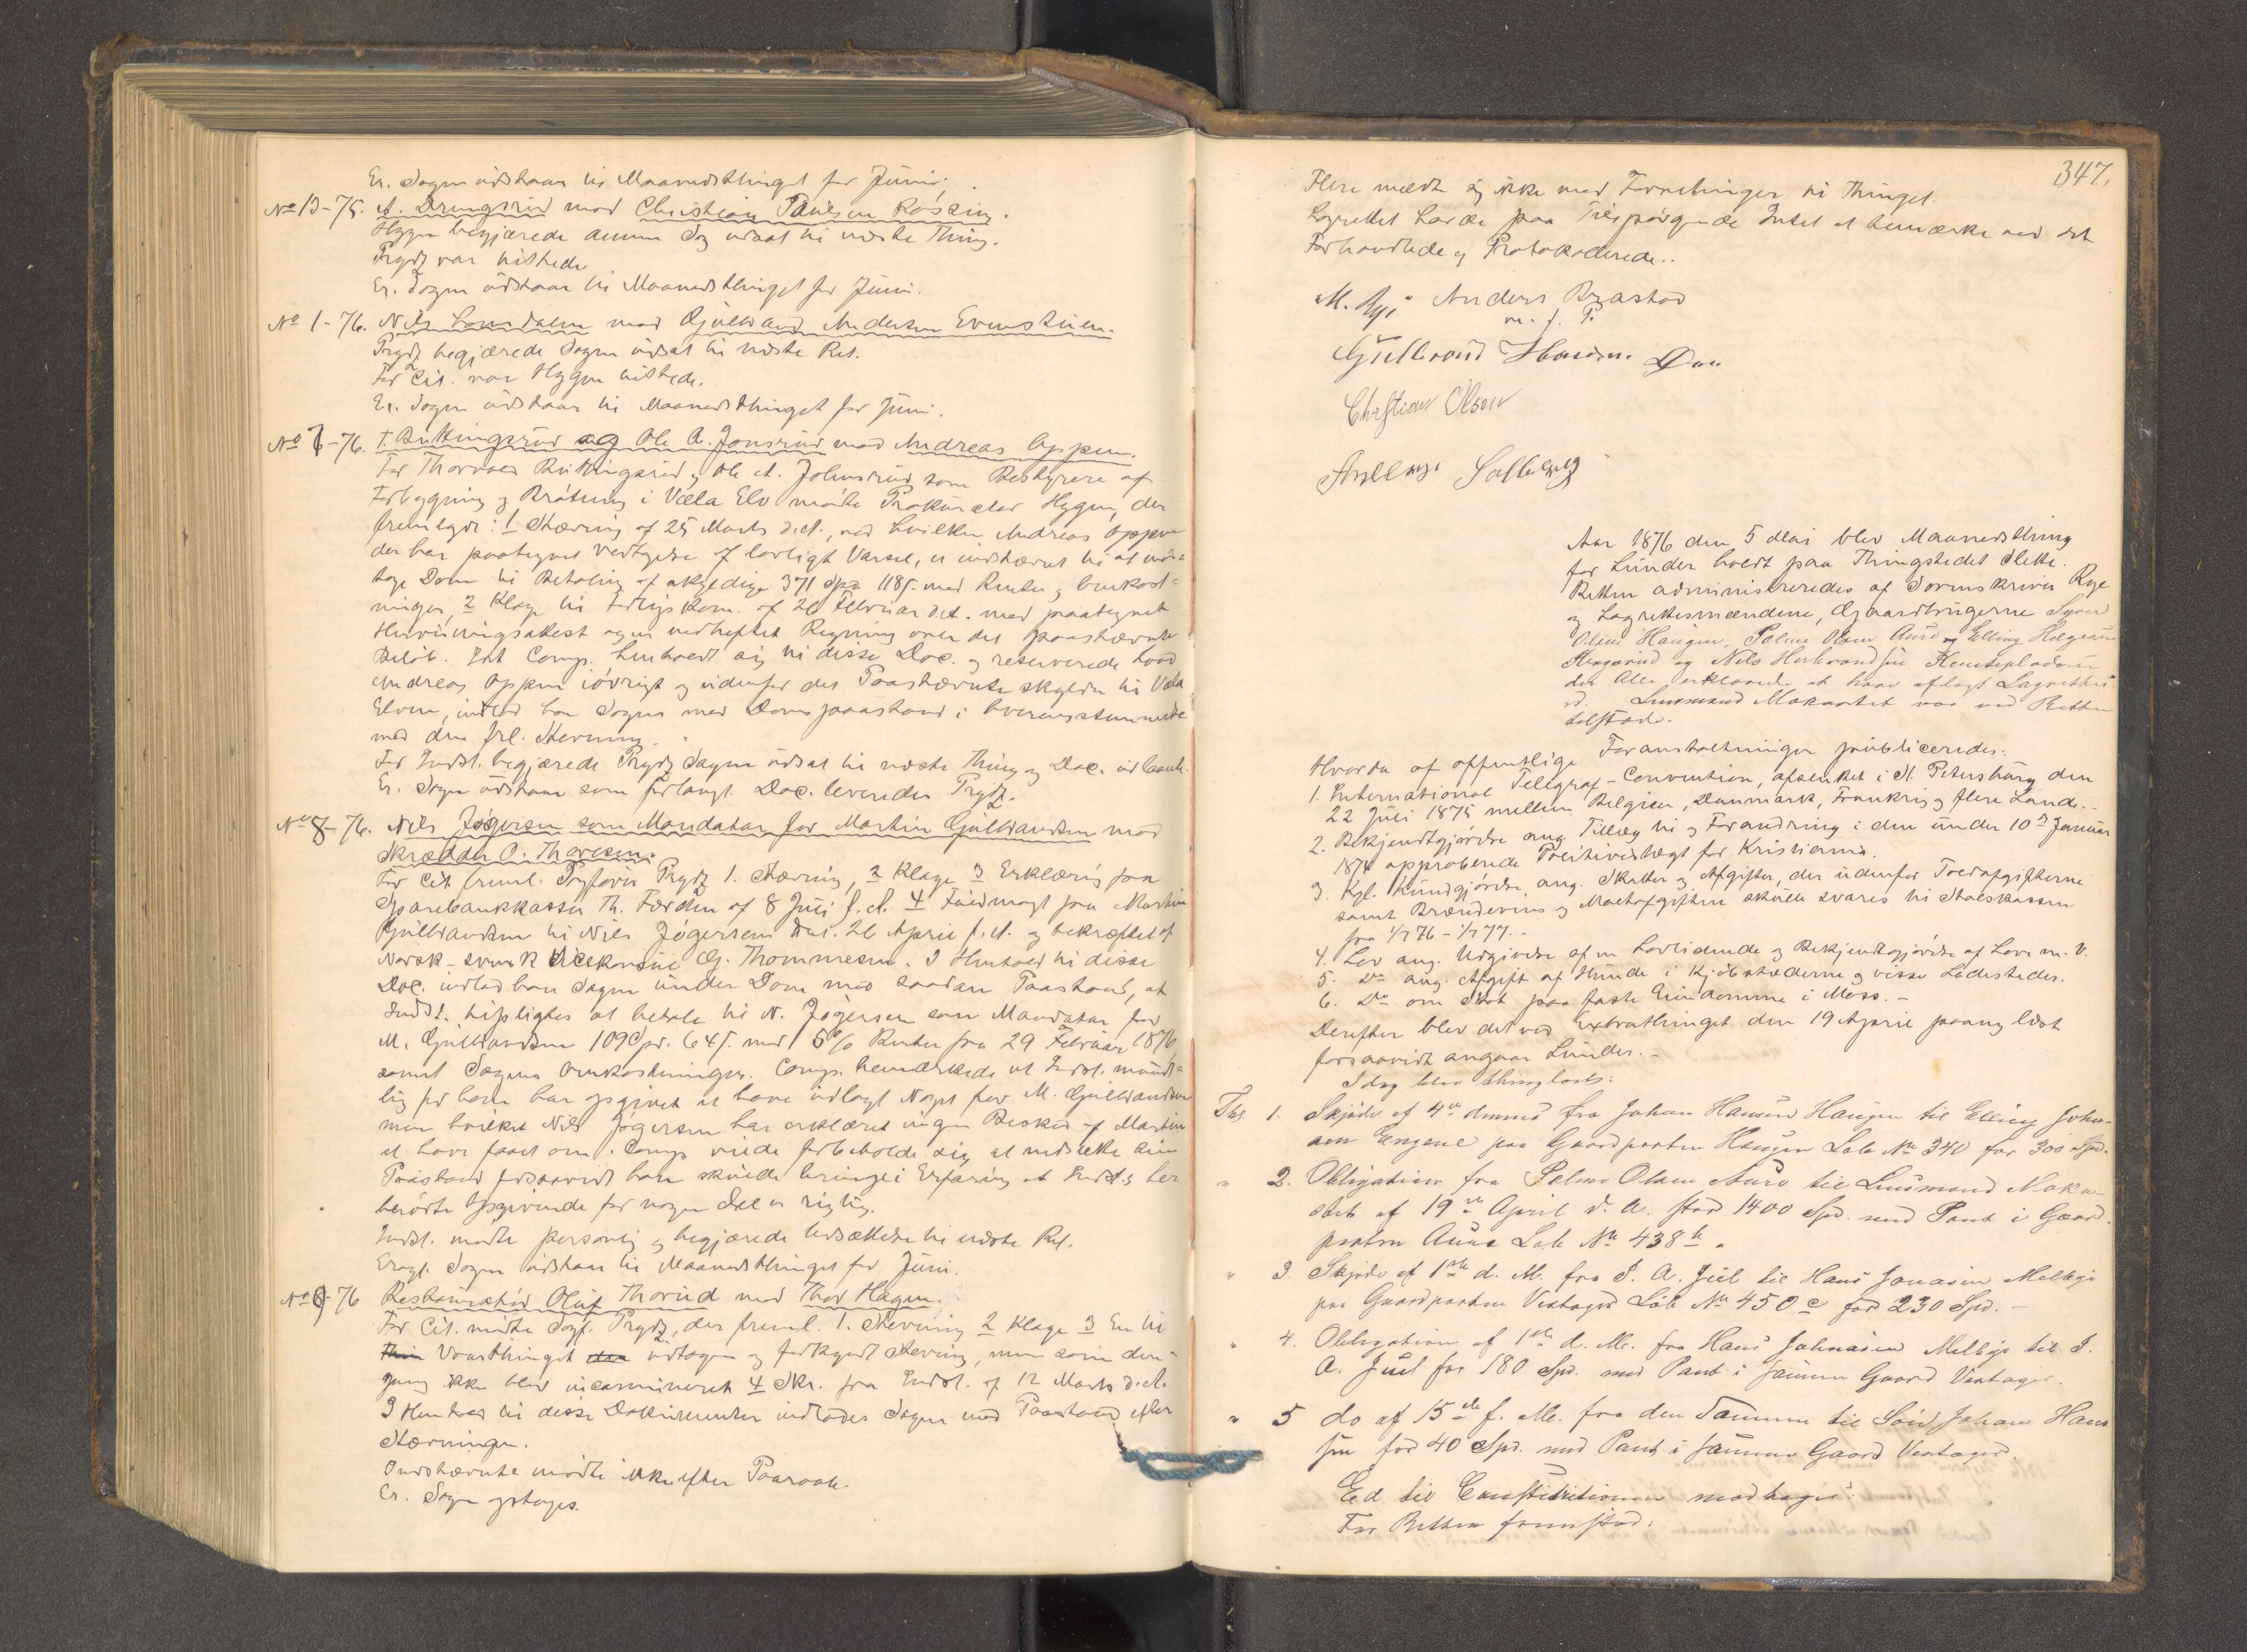 Er. Sagen udstaar til Maanedsthinget for Juni.
No 13-75. A. Drengsrud mod Christian Paulsen
Hygen begjærede denne Sag udsat til næste Thing.
Prydz var tilstede
Er. Sagen udstaar til Maanedsthinget for Juni.
No 1-76. mod Gulbrand Andersen Evenstuen.
Prydz begjærede Sagen udsat til næste Ret.
For Cit. var Hygen tilstede.
Er. Sagen udstaar til Maanedsthinget for Juni.
No 6-76. T. Buttingsrud og Ole A. Jonsrud mod Andreas Oppen.
For Thorvald Buttingsrud og Ole A. Johnsrud som Bestyrere af
Forbygning og Brøtning i Væla Elv mødte Prokurator Hygen, der
fremlagde: 1 Stævning af 25 Marts d.A., ved hvilken Andreas Oppen
der har paategnet Vedtagelse af lovligt Varsel, er indstævnet til at mod-
tage Dom til Betaling af skyldige 371 Spd. 118 s. med Renter og Omkost-
ninger, 2 Klage til Forligskom. af 26 Februar d.A. med paategnet
Henvisningsattest og en vedheftet Regning over det paastævnte
Beløb. Idet Comp. henholdt sig til disse Doc. og reserverede hvad
Andreas Oppen iøvrigt og udenfor det Paastævnte skylder til Væla
Elven, indlod han Sagen med Domspaastand i Overensstemmelse
med den frl. Stevning.
For Indst. begjærede Prydz Sagen udsat til næste Thing og Doc. udlaant.
Er. Sagen udstaar som forlangt. Doc. leveredes Prydz.
No 8-76. Nils Jøgersen som Mandatar for Martin Gulbrandsen mod
Skrædder O. Thoresen.
For Cit. freml. Sagfører Prydz 1. Stævning, 2 Klage 3 Erklæring fra
Sparebankkasser Th. Førden af 8 Juli f.A. 4 Fuldmagt fra Martin
Gulbrandsen til Nils Jøgersen dat. 26 April f.A. og bekræftet af
Norsk-svensk Vicekonsul G. Thommesen. I Henhold til disse
Doc. indlod han Sagen under Dom med saadan Paastand, at
Indst. tilpligtes at betale til N. Jøgersen som Mandatar for
M. Gulbrandsen 109 Spd. 64 s. med 5% Renter fra 29 Februar 1876
samt Sagens Omkostninger. Comp. bemærkede at Indst. mundt-
lig for ham har opgivet at have udlagt Noget for M. Gulbrandsen
men hvilket Nils Jøgersen har erklæret ingen Besked af Martin
at have faaet om. Comp. vilde forbeholde sig at nedsætte sin
Paastand forsaavidt han skulde bringe i Erfaring at Indst.s her
berørte Opgivende for nogen Del er rigtig.
Indst. mødte personlig og begjærede Udsættelse til næste Ret.
Eragt. Sagen udstaar til Maanedsthinget for Juni.
No 9-76 Restauratør Oluf Thorud mod Thor Hagen.
For Cit. mødte Sagf. Prydz, der freml. 1. Stevning 2 Klage 3 En til
Vaarthinget udtagen og forkyndt Stevning, men som den-
gang ikke blev incamineret 4 Skr. fra Indst. af 12 Marts d.A.
I Henhold til disse Dokumenter indlodes Sagen med Paastand efter
Stævningen.
Indstævnte mødte ikke efter Paaraab.
Er. Sagen optages.
347.
Flere meldte sig ikke med Forretninger til Thinget.
Lagrettet havde paa Tilspørgende Intet at bemærke ved det
Forhandlede og Protokollerede..
Anders Brastad
m. f. P.
Gulbrand Hansen
Christian Olsen
Solberg
Aar 1876 den 5 Mai blev Maanedsthing
for Lunder holdt paa Thingstedet Slette.
Retten administreredes af Sorenskriver Rye
og Lagrettesmændene, Gaardbrugerne
Olsen Haugen, Palme Olsen Aurø og Elling Helgesen
og Nils Herbrandsen
der Alle erklærede at have aflagt Lagrettes
ed. Lensmand Makastet var ved Retten
tilstede.
Hvorda af offentlige Foranstaltninger publiceredes:
1. International Telegraf-Convention, afsluttet i St. Petersburg den
22 Juli 1875 mellem Belgien, Danmark, Frankrig og flere Lande.-
2. Bekjendtgjørelse ang. Tillæg til og Forandring i den under 10de Januar
1874 approberede Politivedtægt for Kristiania.
3. Kgl. Kundgjørelse ang. Skatter og Afgifter, der udenfor Toldafgifterne
samt Brændevins og Maltafgiften skulle svares til Statskassen
fra 1/7 76 - 1/7 77.-
4. Lov ang. Udgivelse af en Lovtidende og Bekjendtgjørelse af Love m. V.
5. Do ang. Afgift af Hunde i Kjøbstæderne og visse Ladesteder.
6. Do om Skat paa faste Eiendomme i Moss.-
Derefter blev det ved Extrathinget den 19 April paany læst
forsaavidt angaar Lunder.-
Idag blev thinglæst:
1. Skjøde af 4de dennes fra Johan Hansen Haugen til Elling Johan-
sen Engene paa Gaardparten Haugen Løb No 340 for 300 Spd.
" 2. Obligation fra Palme Olsen Aurø til Lensmand Maka-
stet af 19de April d. A. stor 1400 Spd. med Pant i Gaard-
parten Aurø Løb No 438b.
" 3. Skjøde af 1ste d. M. fra J. A. Juel til Hans Jonasen
paa Gaardparten Viktager Løb No 450 c for 230 Spd.-
" 4. Obligation af 1ste d. M. fra Hans Johnasen til J.
A. Juel for 180 Spd. med Pant i samme Gaard Viktager.
" 5 do af 15de f. M. fra den Samme til Johan Han
sen for 40 Spd. med Pant i samme Gaard Viktager.
Ed til Constitutionen modtages:
For Retten fremstod: